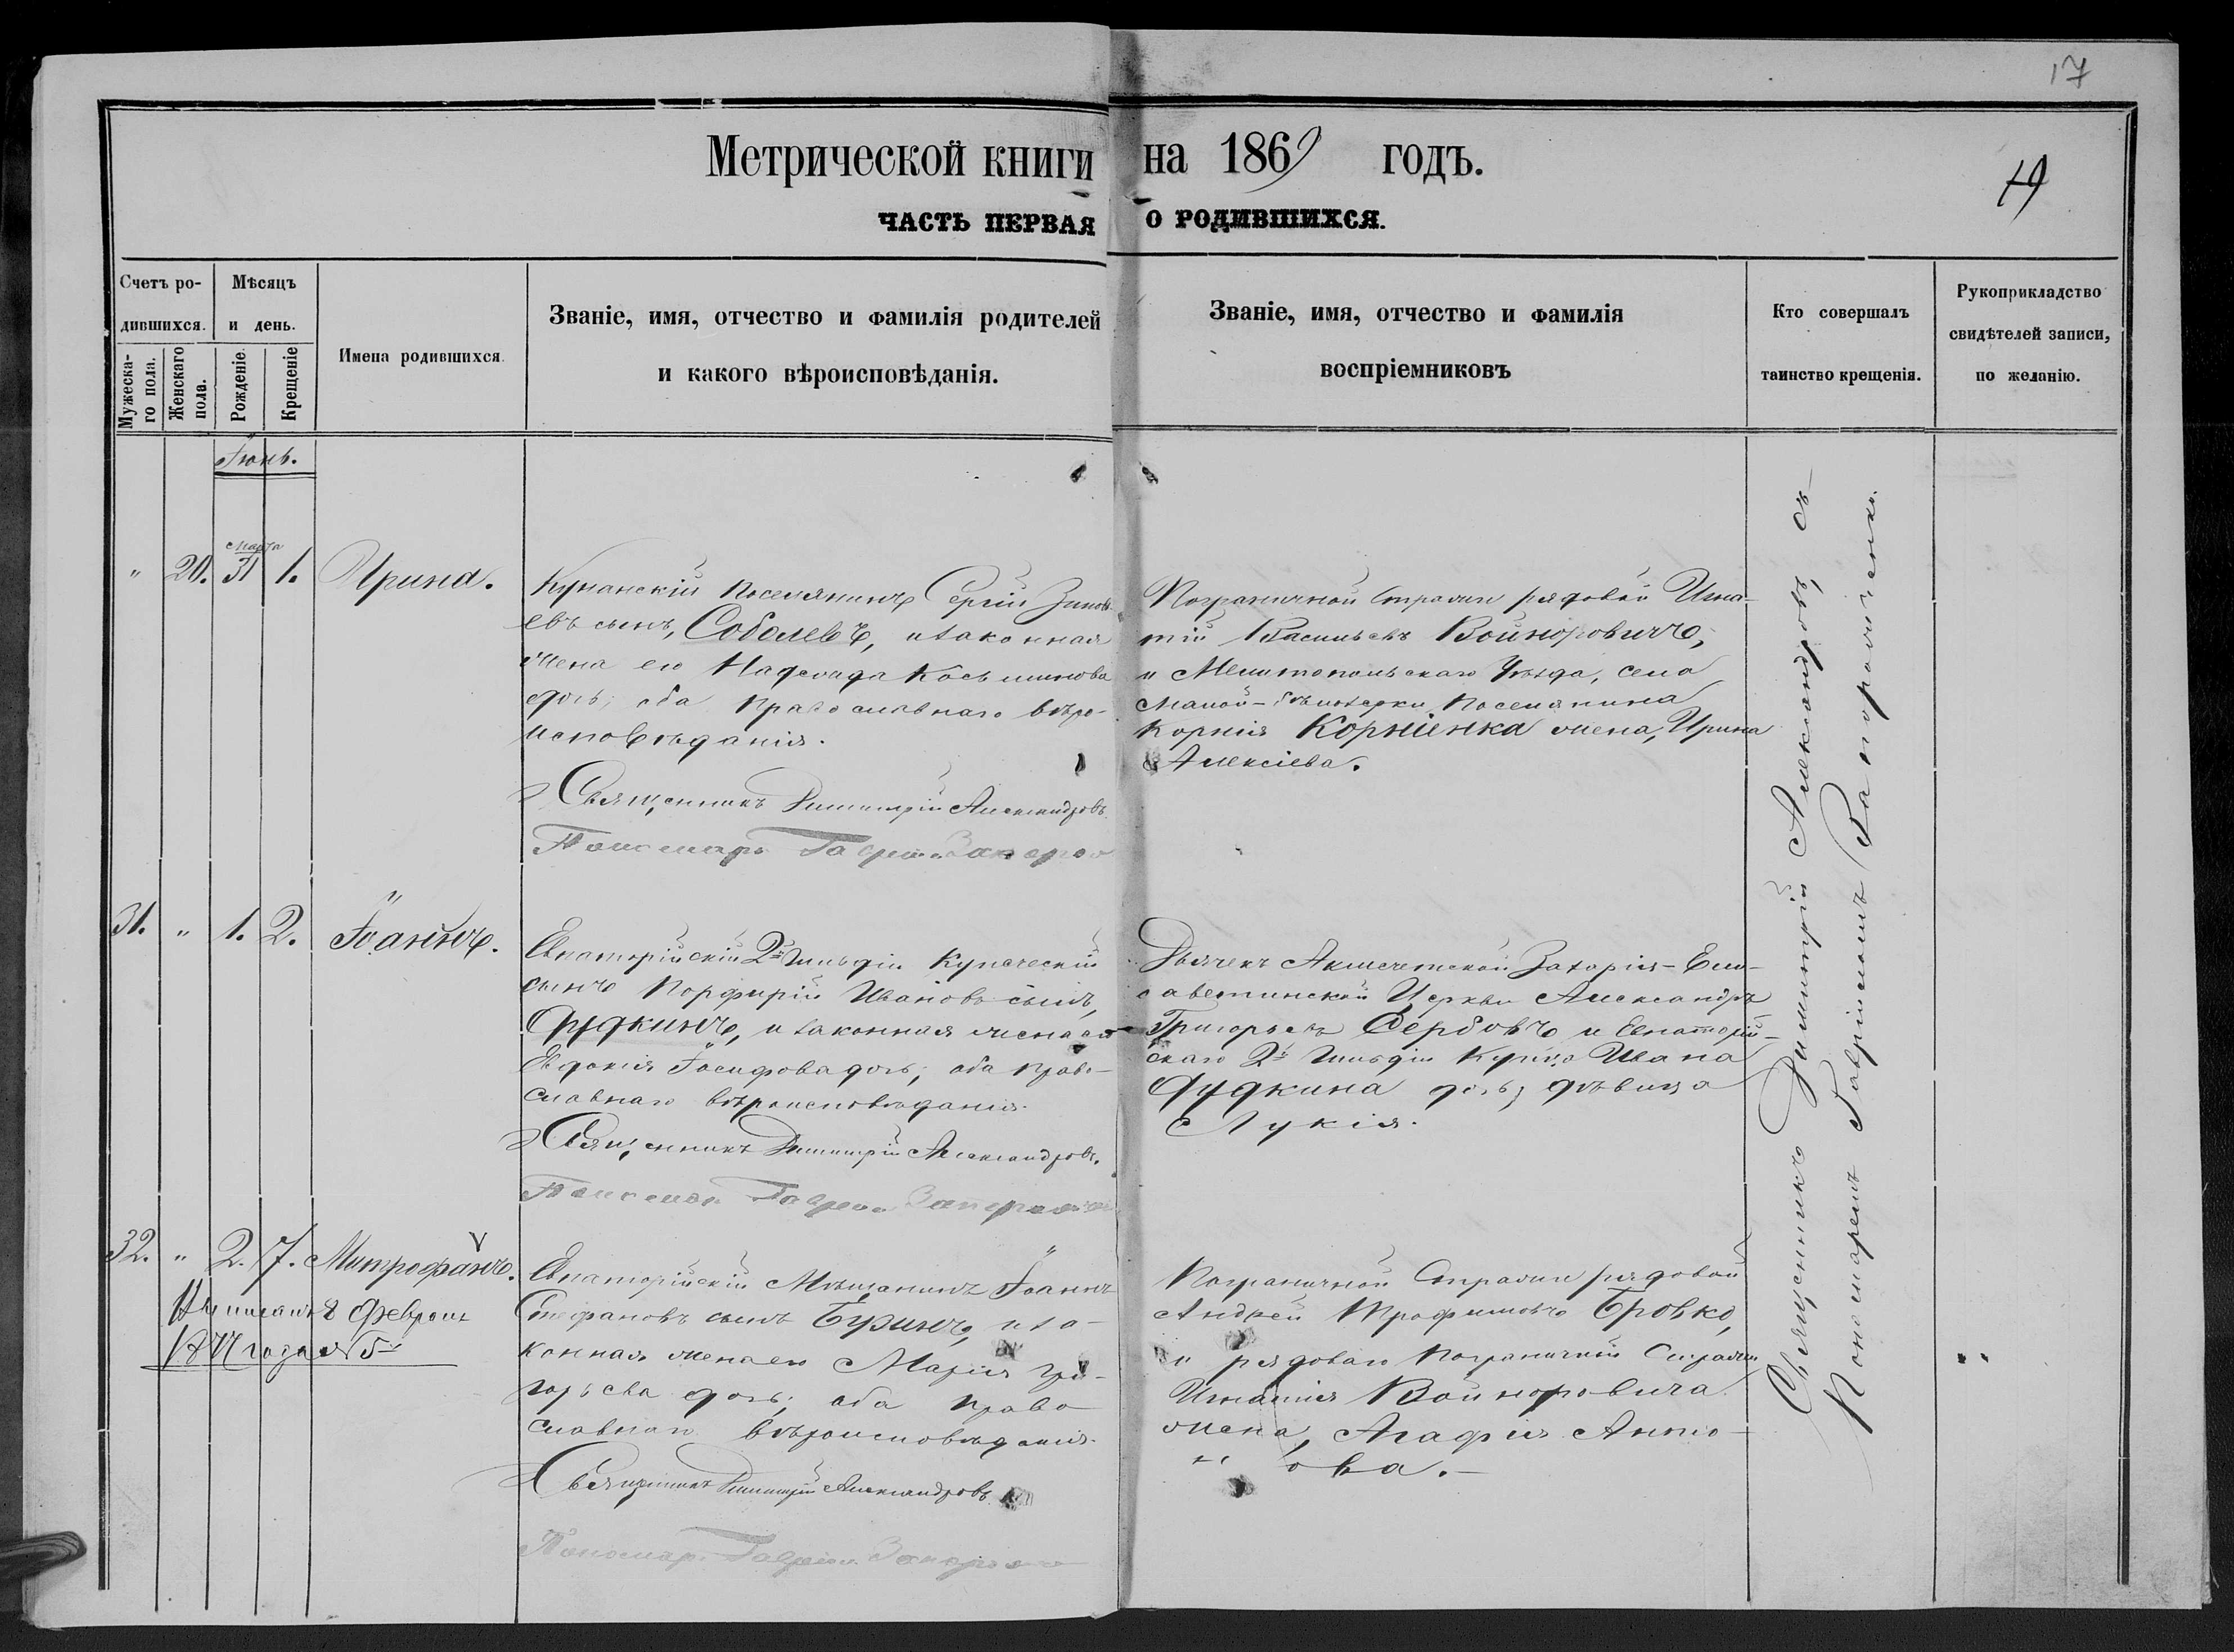 17
Метрической книги на 1869 годъ.
19
ЧАСТЬ ПЕРВАЯ О РОДИВШИХСЯ.
Счетъ ро-
дившихся.
Мужеска-
го пола.
Женскаго
пола.
Мѣсяцъ
и день.
Рожденіе.
Крещеніе
Имена родившихся.
Званіе, имя, отчество и фамилія родителей
и какого вѣроисповѣданія.
Званіе, имя, отчество и фамилія
воспріемниковъ
Кто совершалъ
таинство крещенія.
Рукоприкладство
свидѣтелей записи,
по желанію.
Іюнь.
" 20. Марта 31 1. Ирина.
поселянинъ Сергій Зиновь
евъ сынъ, Соболевъ, и законная
жена его Надежда Косьминова
дочь; оба православнаго вѣро-
исповѣданія.
Священникъ Димитрій Александровъ.
Пономарь
Пограничной Стражи рядовой Игна-
тій Васильевъ Войноровичъ,
и Мелитопольскаго Уѣзда, села
Малой-Бѣлозерки поселянина
Корнія Корніенка жена, Ирина
Алексіева.
31. " 1. 2. Іоаннъ.
Евпаторійскій 2й гильдіи Купеческій
сынъ Порфирій Ивановъ сынъ,
Дудкинъ, и законная жена его
Евдокія Іосифова дочь; оба право-
славнаго вѣроисповѣданія.
Священникъ Димитрій Александровъ.
Пономарь
Дьячекъ Акмечетской Захаріе-Ели-
саветинской Церкви Александръ
Григорьевъ Сербовъ и Евпаторій-
скаго 2й Гильдіи Купца Ивана
Дудкина дочь, дѣвица
Лукія.
32. " 2. 7. Митрофанъ.
8 Февраля
1877 года № 5
Евпаторійскій Мѣщанинъ Іоаннъ
Стефановъ сынъ Буринъ, и за-
конная жена его Марія Гри-
горьева дочь; оба право
славнаго вѣроисповѣданія.
Священникъ Димитрій Александровъ
Пономарь
Пограничной Стражи рядовой
Андрей Трофимовъ Бровко,
и рядоваго Пограничной Стражи
Игнатія Войноровича
жена, Агафія Анто-
нова.
Священникъ Димитрій Александровъ, съ
Пономаремъ Гавріиломъ Запорожченко.